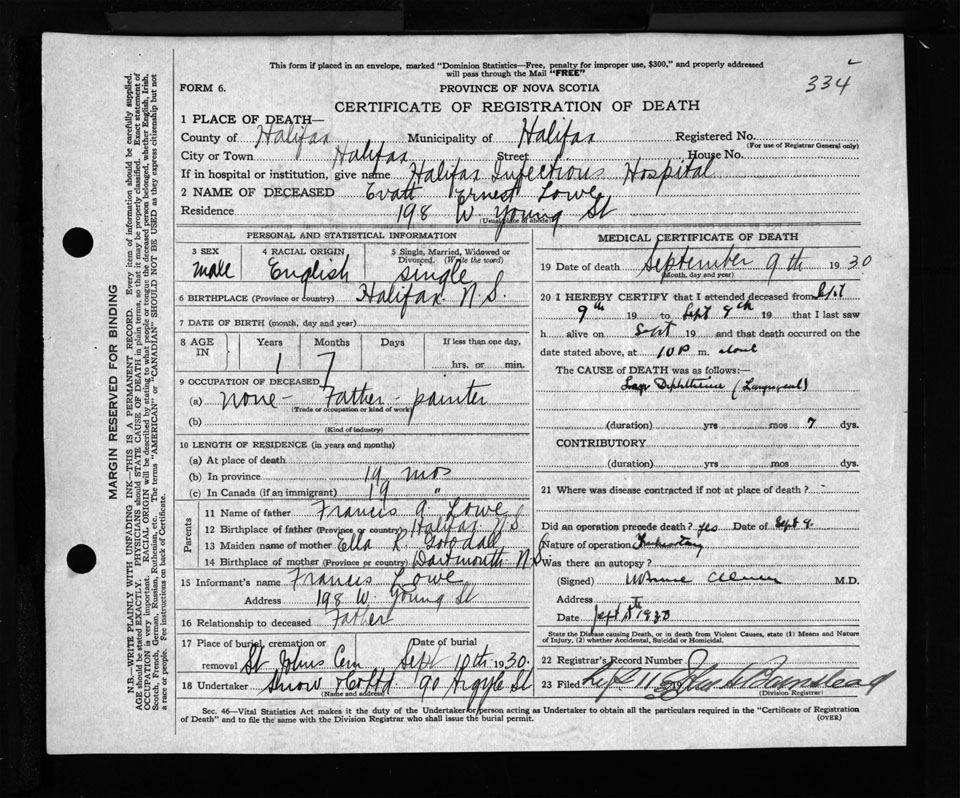 This form if placed in an envelope, marked "Dominion Statistics—Free, penalty for improper use, $300," and properly addressed
will pass through the Mail "FREE"
334
FORM 6.
PROVINCE OF NOVA SCOTIA
CERTIFICATE OF REGISTRATION OF DEATH
1 PLACE OF DEATH—
County of Halifax Municipality of Halifax Registered No.
(For use of Registrar General only)
City or Town Halifax Street House No.
If in hospital or institution, give name Halifax Infectious Hospital
2 NAME OF DECEASED Evatt Ernest Lowe
Residence 198 W. Young St
(Usual place of abode)
PERSONAL AND STATISTICAL INFORMATION
3 SEX 4 RACIAL ORIGIN 5 Single, Married, Widowed or
Divorced. (Write the word)
male English single
6 BIRTHPLACE (Province or country) Halifax N.S.
7 DATE OF BIRTH (month, day and year)
8 AGE IN Years Months Days If less than one day,
1 7 hrs. or min.
9 OCCUPATION OF DECEASED
(a) none - Father - painter
(Trade or occupation or kind of work)
(b)
(Kind of industry)
10 LENGTH OF RESIDENCE (in years and months)
(a) At place of death
(b) In province 19 mos
(c) In Canada (if an immigrant) 19 "
Parents
11 Name of father Francis A. Lowe
12 Birthplace of father (Province or country) Halifax N.S.
13 Maiden name of mother Ella R.
14 Birthplace of mother (Province or country) Dartmouth N.S.
15 Informant's name Francis Lowe
Address 198 W. Young St
16 Relationship to deceased Father
17 Place of burial, cremation or Date of burial
removal St Johns Cem Sept 10th 1930.
18 Undertaker Snow & Co Ltd 90 Argyle St
(Name and address)
MEDICAL CERTIFICATE OF DEATH
19 Date of death September 9th 1930
(Month, day and year)
20 I HEREBY CERTIFY that I attended deceased from Sept
9th 19 to Sept 9th 19 that I last saw
h alive on Sept 19 and that death occurred on
the date stated above, at 10 P m.
The CAUSE of DEATH was as follows:—
Diphtheria (Laryngeal)
(duration) yrs mos 7 dys.
CONTRIBUTORY
(duration) yrs mos dys.
21 Where was disease contracted if not at place of death?
Did an operation precede death? yes Date of Sept 9.
Nature of operation
Was there an autopsy?
(Signed) M.D.
Address
Date Sept 1930
State the Disease causing Death, or in death from Violent Causes, state (1) Means and Nature
of Injury, (2) whether Accidental, Suicidal or Homicidal.
22 Registrar's Record Number
23 Filed 11 19
(Division Registrar)
Sec. 46—Vital Statistics Act makes it the duty of the Undertaker or person acting as Undertaker to obtain all the particulars required in the "Certificate of Registration
of Death" and to file the same with the Division Registrar who shall issue the burial permit.
(OVER)
MARGIN RESERVED FOR BINDING
N.B.—WRITE PLAINLY WITH UNFADING INK—THIS IS A PERMANENT RECORD. Every item of information should be carefully supplied.
AGE should be stated EXACTLY. PHYSICIANS should STATE CAUSE OF DEATH in plain terms, so that it may be properly classified. Exact statement of
OCCUPATION is very important. RACIAL ORIGIN will be described by stating to what people or tongue the deceased person belonged, whether English, Irish,
Scotch, French, German, Russian, Ruthenian, etc. The terms "AMERICAN" or "CANADIAN" SHOULD NOT BE USED as they express citizenship but not
a race or people. See instructions on back of Certificate.